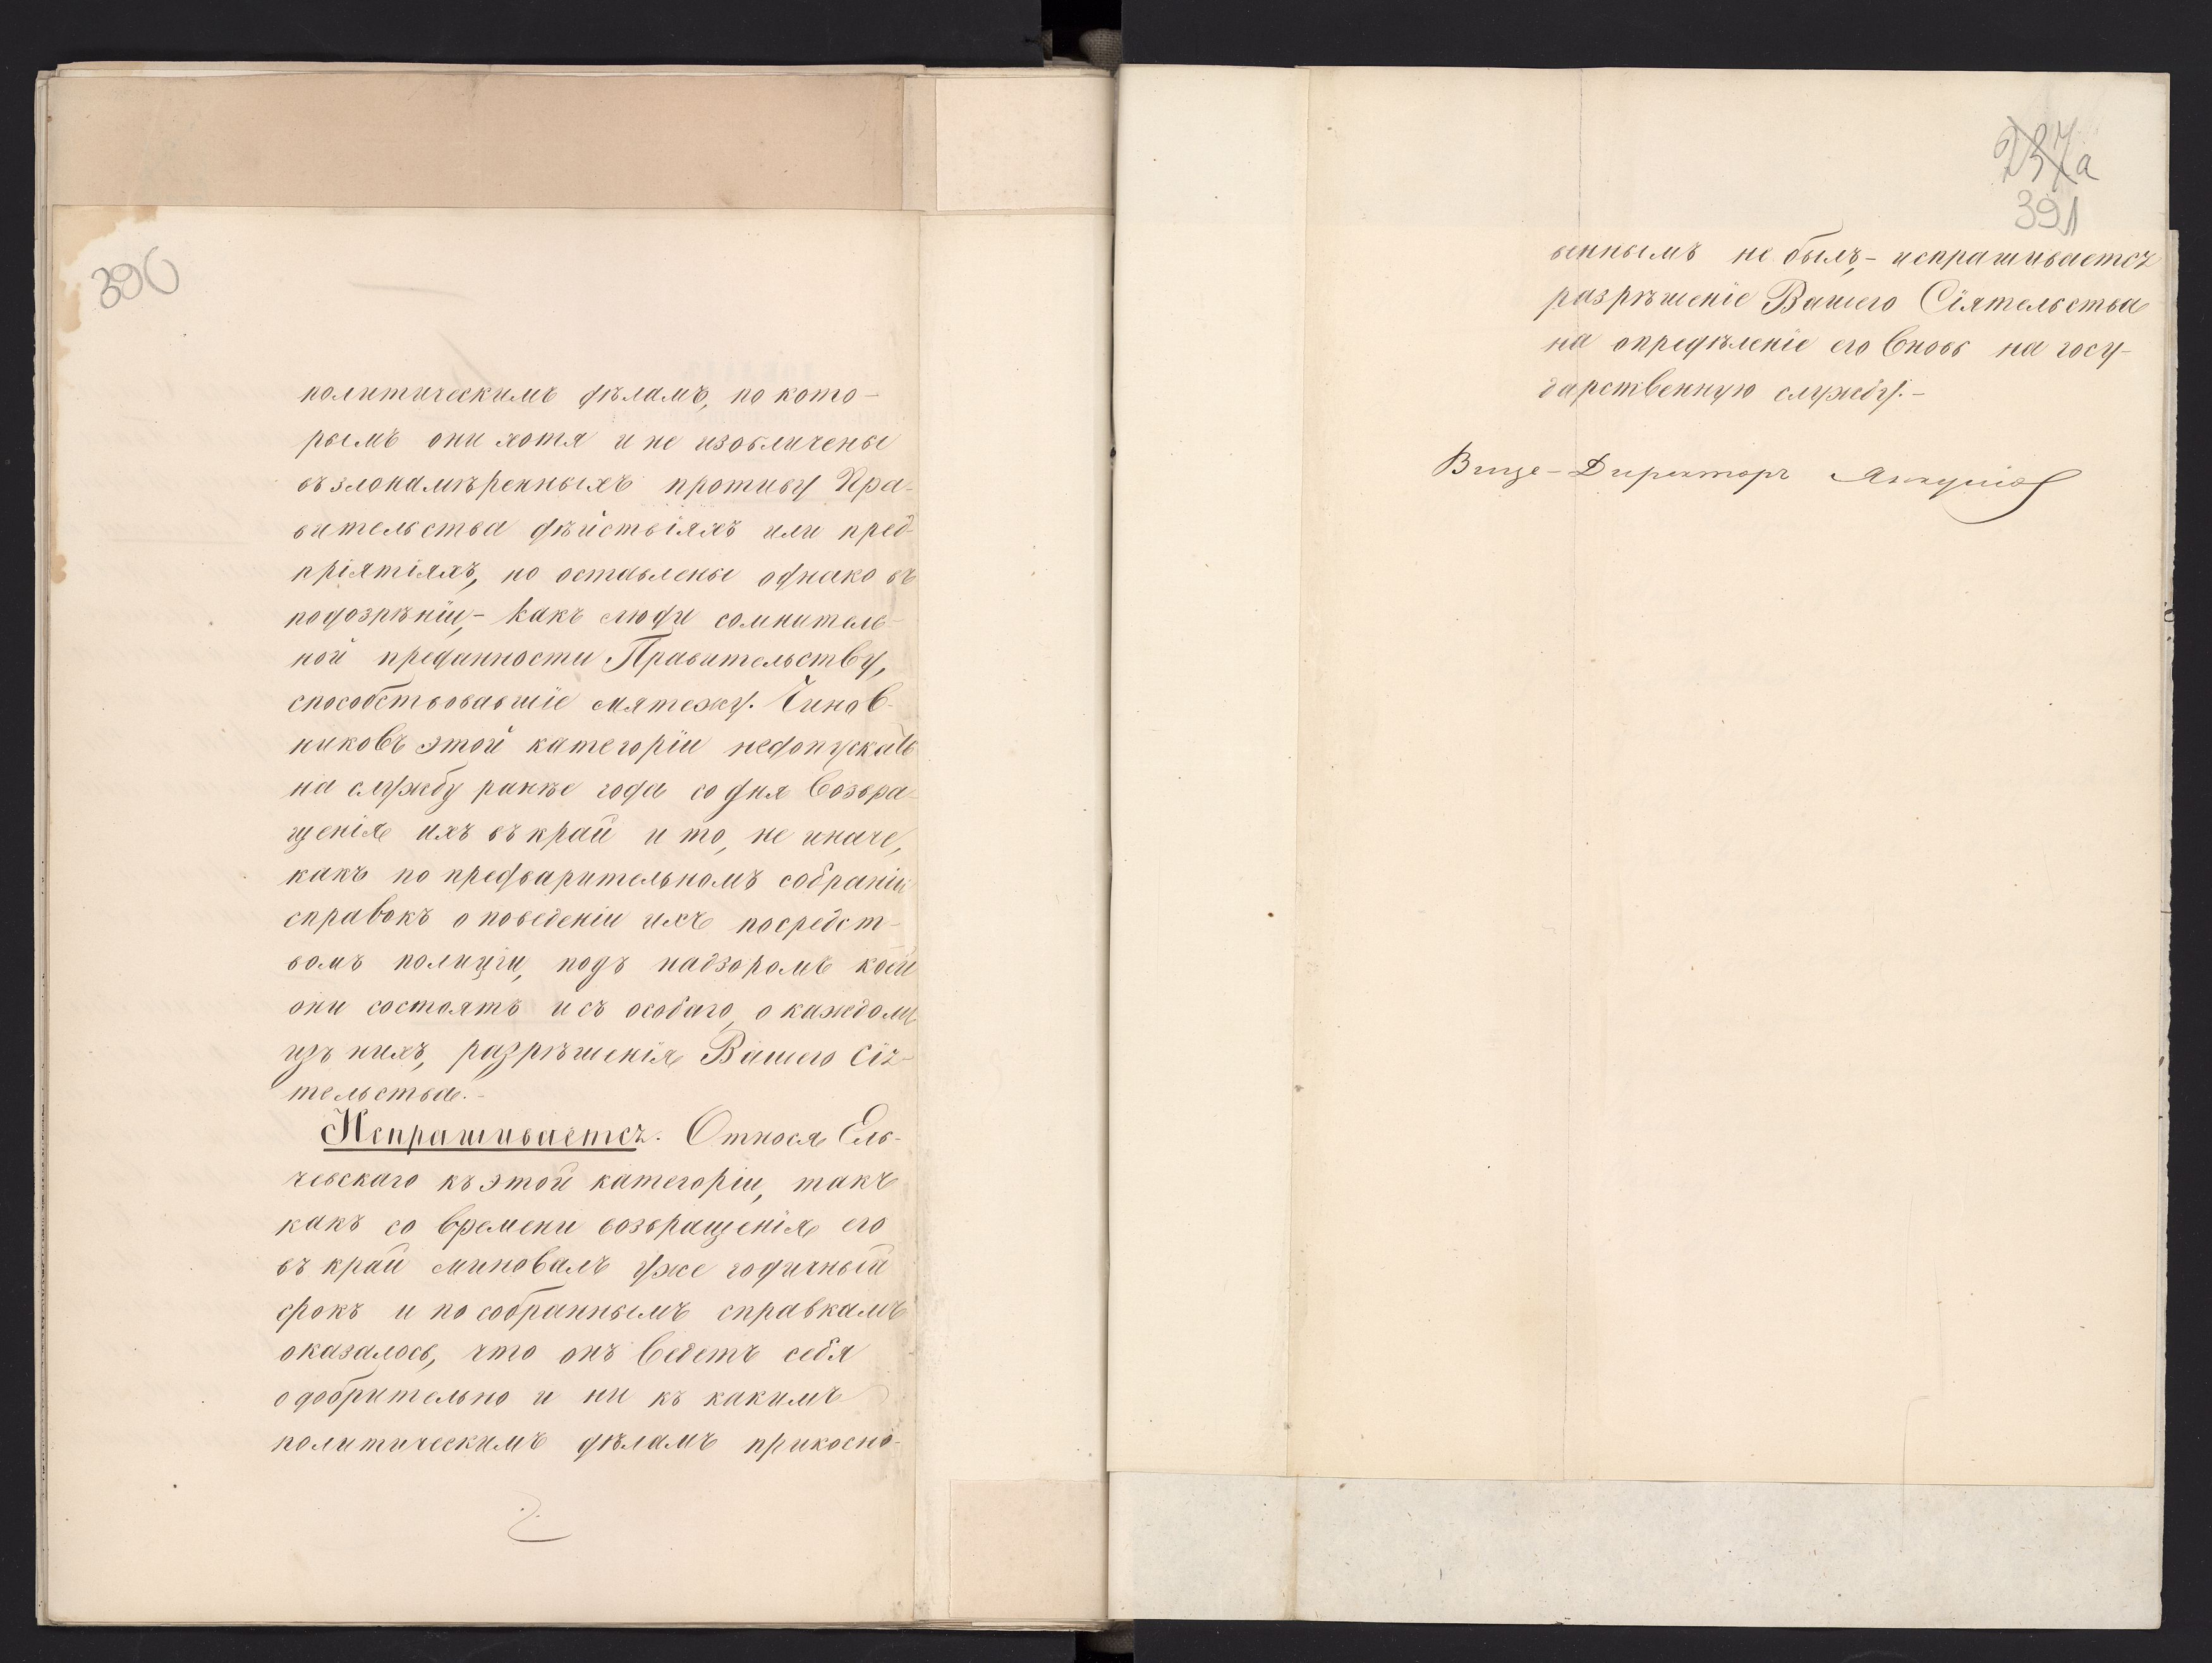 390
политическимъ дѣламъ, по кото-
рымъ они хотя и не изобличены
въ злонамѣренныхъ противу Пра-
вительства дѣйствіяхъ или пред-
пріятіяхъ, но оставлены однако въ
подозрѣніи,- какъ люди сомнитель-
ной преданности Правительству,
способствовавшіе мятежу. Чинов-
никовъ этой категоріи недопускать
на службу ранѣе года со дня возвра-
щенія ихъ въ край и то, не иначе,
какъ по предварительномъ собраніи
справокъ о поведеніи ихъ посредст-
вомъ полиціи, подъ надзоромъ коей
они состоятъ и съ особаго, о каждомъ
изъ нихъ, разрѣшенія Вашего Сія-
тельства.-
Испрашивается. Относя Ель-
чевскаго къ этой категоріи, такъ
какъ со времени возвращенія его
въ край миновалъ уже годичный
срокъ и по собраннымъ справкамъ
оказалось, что онъ ведетъ себя
одобрительно и ни къ какимъ
политическимъ дѣламъ прикосно-
237а
391
веннымъ не былъ,- испрашивается
разрѣшеніе Вашего Сіятельства
на опредѣленіе его вновь на госу-
дарственную службу.-
Вице-Директоръ